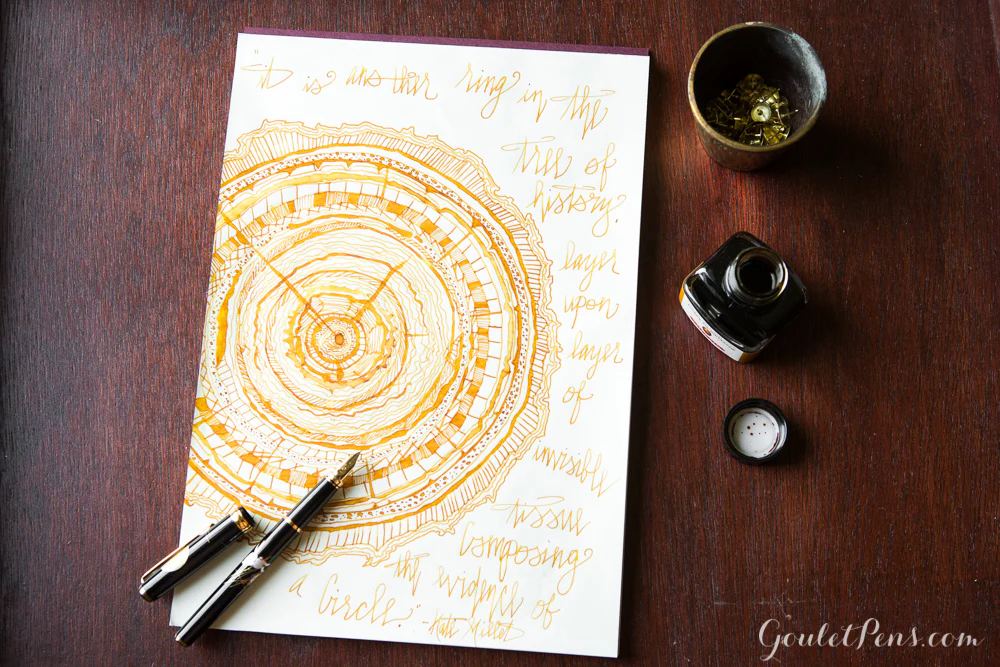 "it is another ring in the
tree of
history.
layer
upon
layer
of
invisible
tissue
Composing
the evidence of
a Circle." - Kate Millet
GouletPens.com